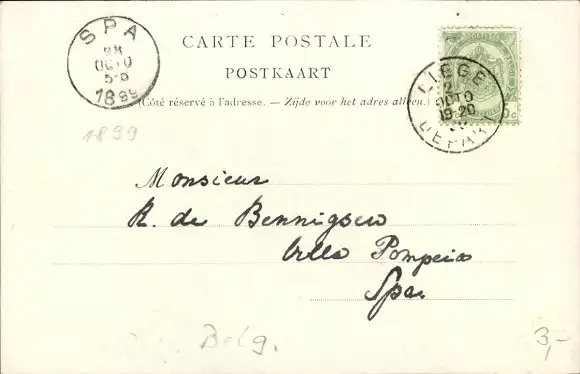 SPA
28
OCTO
5-6
1899
CARTE POSTALE
POSTKAART
(Côté réservé à l'adresse. — Zijde voor het adres alleen.)
LIÉGE
2
OCTO
19-20
DEPART
1899
Monsieur
R. de Bennigsen
Villa Pompeia
Spa.
Belg.
3,-